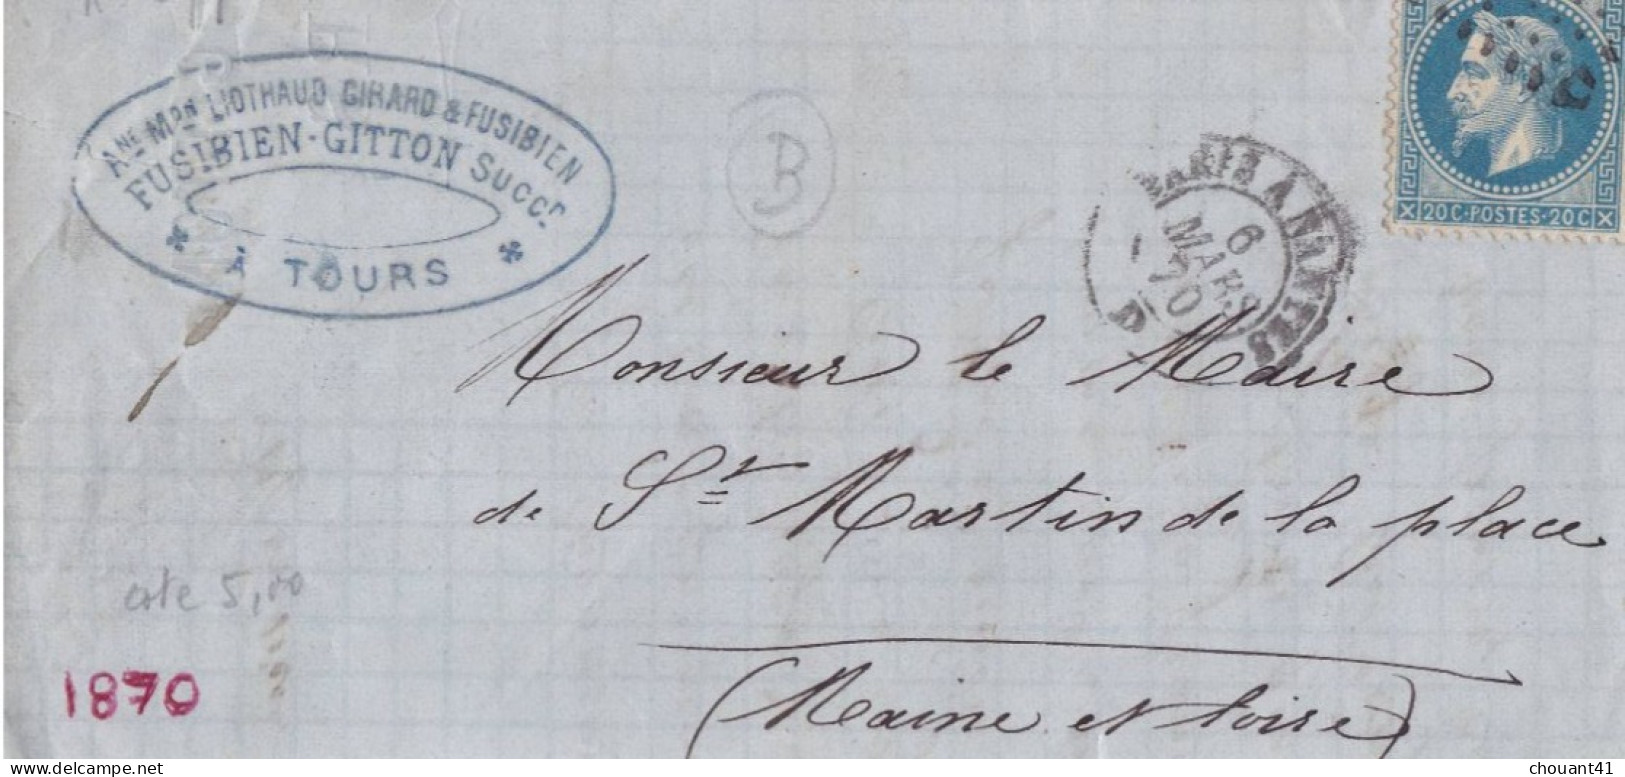 ANE MON LIOTHAUD GIRARD & FUSIBIEN
FUSIBIEN-GITTON SUCCR
À TOURS
B
PARIS A NANTES
6
MARS
70
20C·POSTES·20C
Monsieur le Maire
de St Martin de la place
(Maine et Loire)
cote 5,00
1870
delcampe.net
chouant41